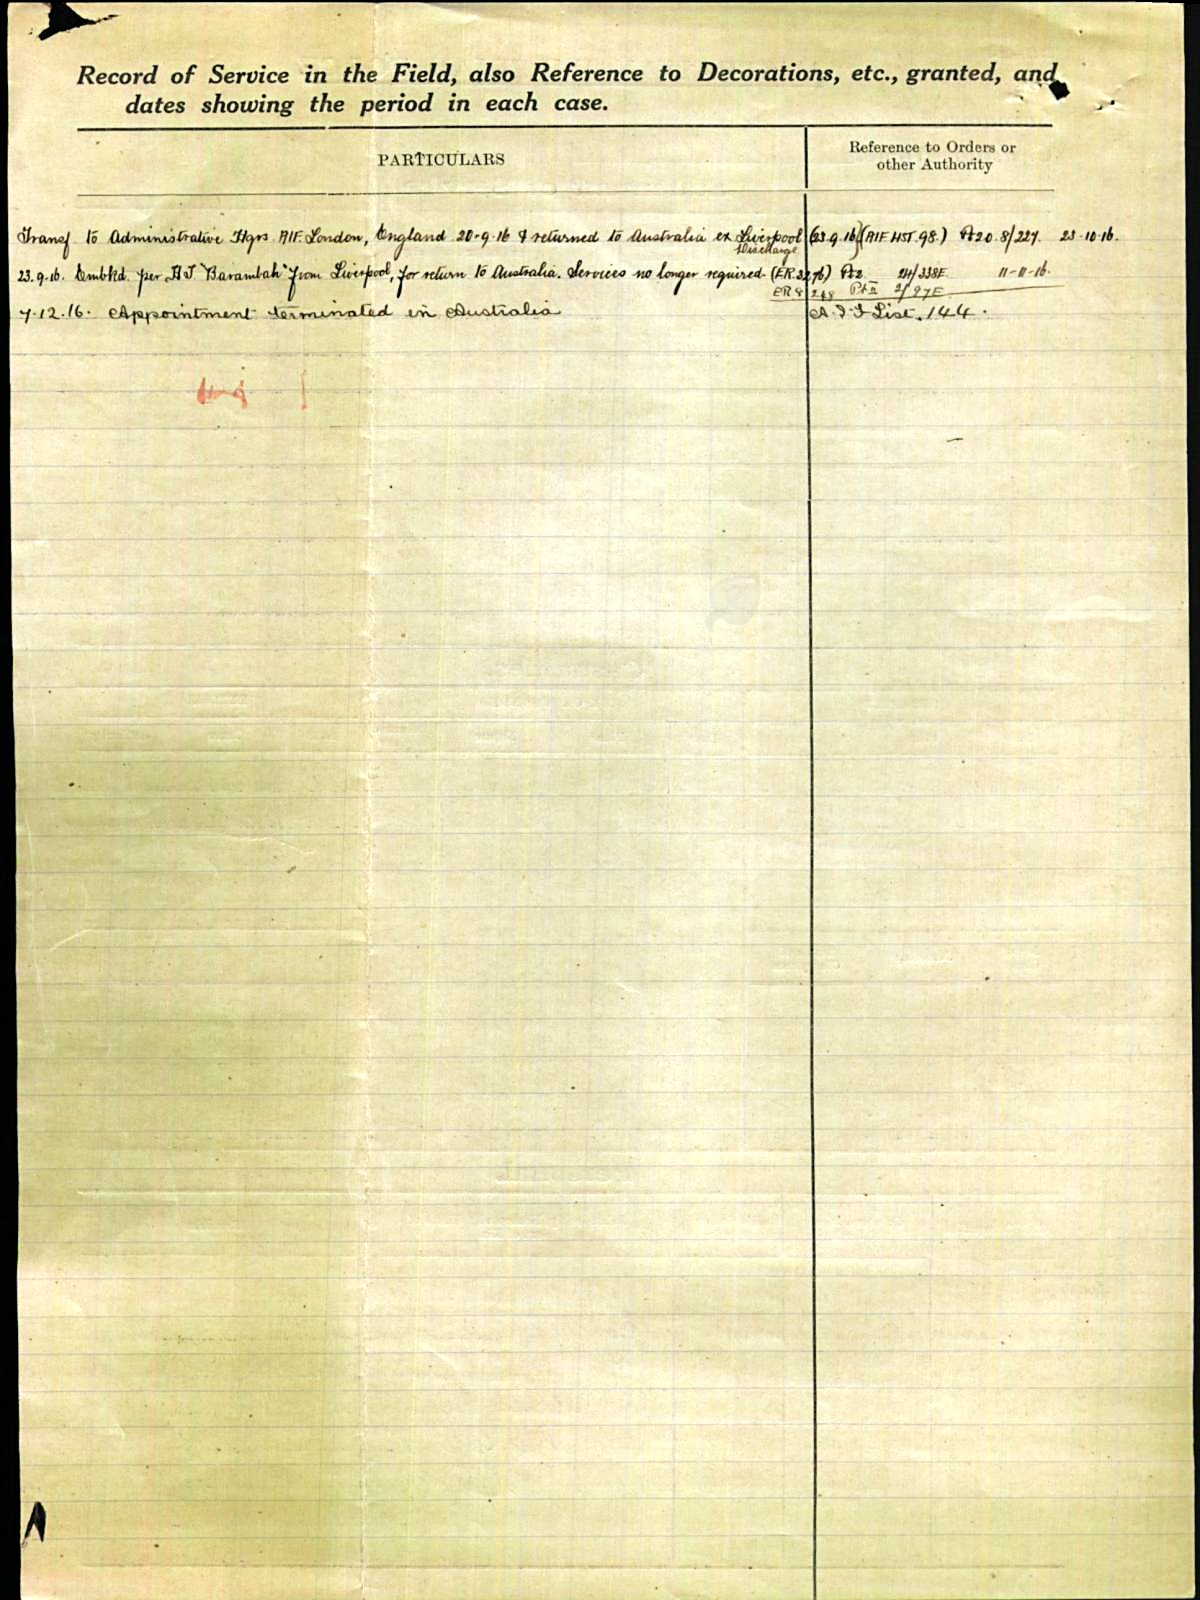 Record of Service in the Field, also Reference to Decorations, etc., granted, and
dates showing the period in each case.
PARTICULARS
Reference to Orders or
other Authority
Transf to Administrative Hqrs AIF London, England 20-9-16 & returned to Australia ex Liverpool (23.9.16) (AIF HST.98.) Pt20.8/227. 23-10-16.
Discharge
23.9.16. Embkd. per HT "Barambah" from Liverpool, for return to Australia. Services no longer required. (ER.3276) Pt2 24/338E 11-11-16.
ER 8 Pt II 2/97E
7.12.16. Appointment terminated in Australia A.I.F List. 144.